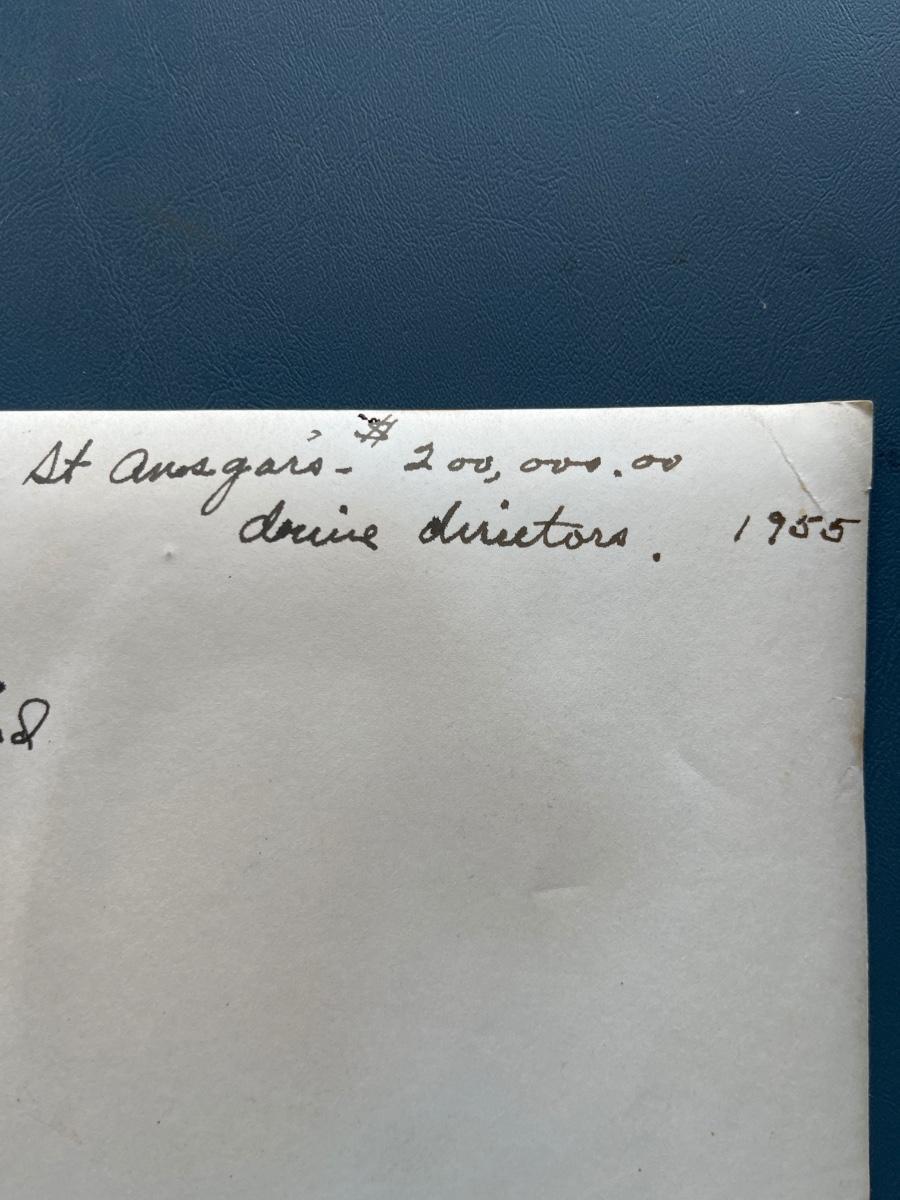 St Ansgar's - $200,000.00
drive directors. 1955